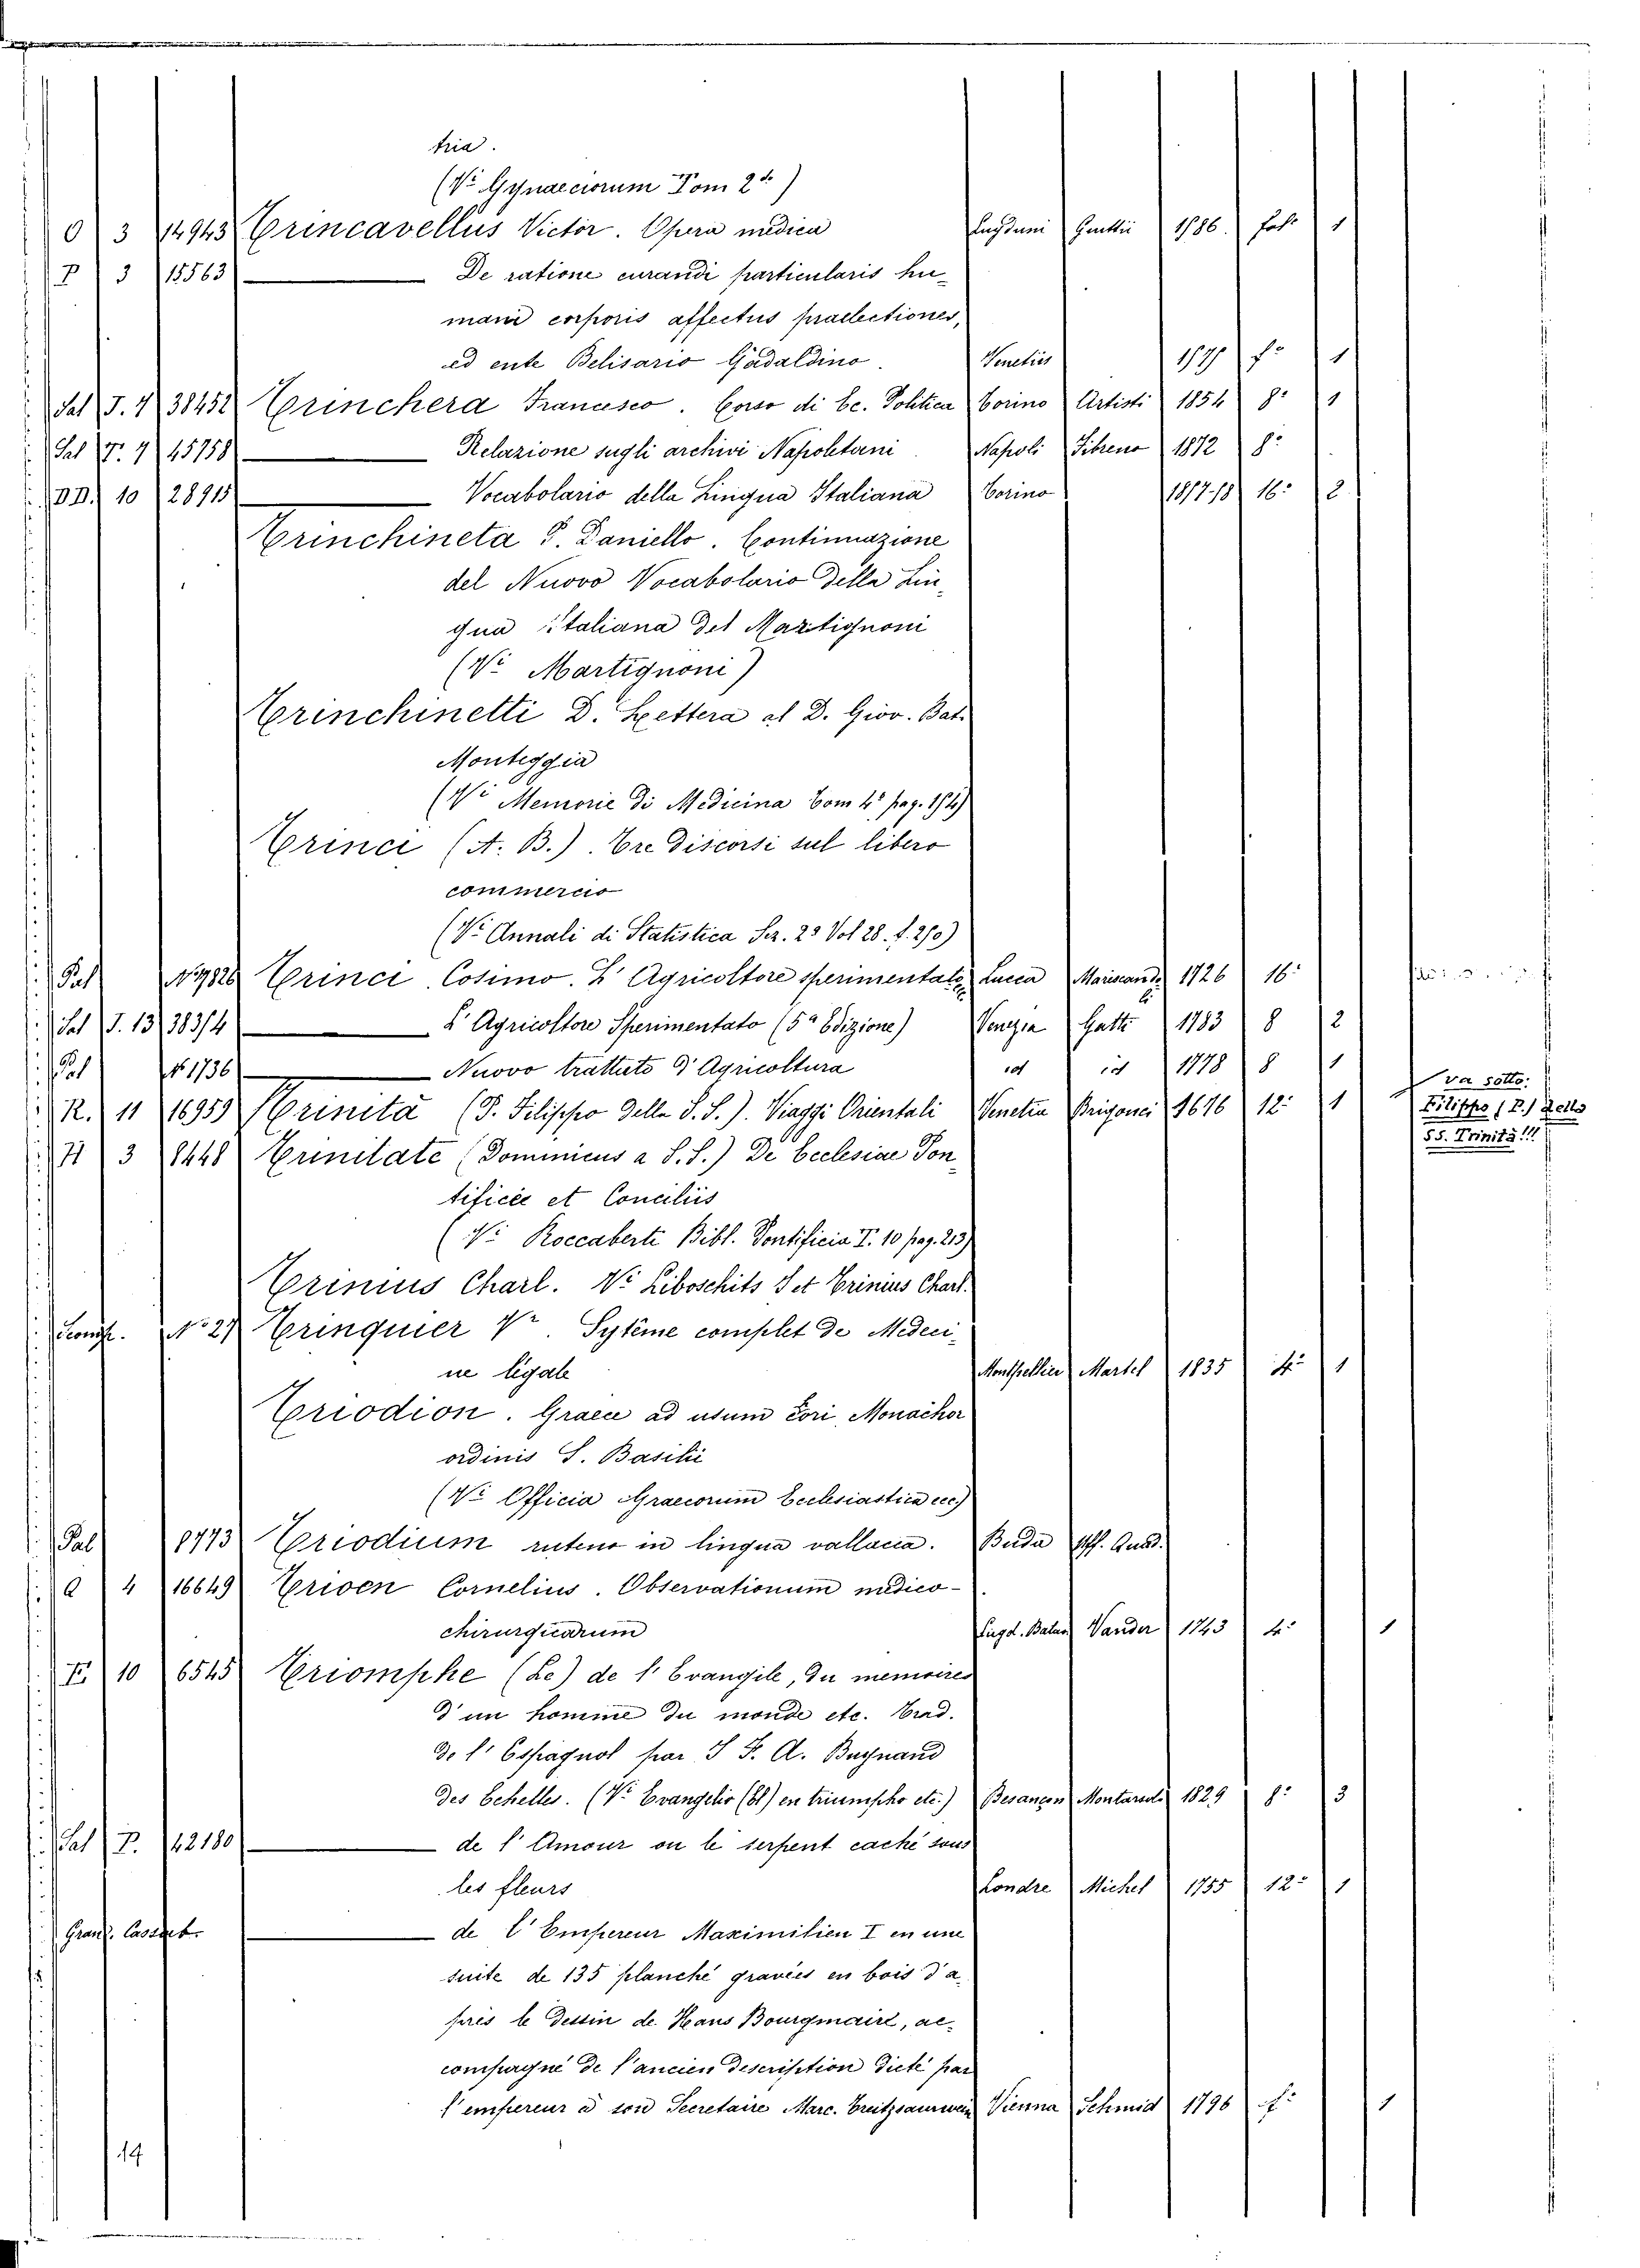 tria.
(Vi Gynaeciorum Tom 2°)
O 3 14943 Trincavellus Victor. Opera medica Lugduni 1586. fol° 1
P 3 15563 De ratione curandi particularis hu-
mani corporis affectus praelectiones,
ed ente Belisario Gadaldino. Venetiis f° 1
Sal J. 7 38452 Trinchera Francesco. Corso di Ec. Politica Torino Artisti 1854 8° 1
Sal T. 7 45758 Relazione sugli archivi Napoletani Napoli Fibreno 1872 8°
DD. 10 28915 Vocabolario della Lingua Italiana Torino 1817-18 16° 2
Trinchineta P. Daniello. Continuazione
del Nuovo Vocabolario della Lin-
gua italiana del Martignoni
(Vi Martignoni)
Trinchinetti D. Lettera al D. Giov. Bat.
Monteggia
(Vi Memorie di Medicina Tom 4° pag. 174)
Trinci (A. B.). Tre Discorsi sul libero
commercio
(Vi Annali di Statistica Ser. 2a Vol 28. f. 270)
Pal N°7826 Trinci Cosimo. L' Agricoltore sperimentato Lucca Mariscand. 1726 16°
Sal J. 13 38374 L' Agricoltore Sperimentato (5a Edizione) Venezia Gatti 1783 8 2
Pal N° 1736 Nuovo trattato d' Agricoltura id id 1778 8 1
R. 11 16959 Trinità (P. Filippo della S. S.). Viaggi Orientali Venetia Brigonci 1676 12° 1
va sotto:
Filippo (P.) della
SS. Trinità!!!
H 3 8448 Trinitate (Dominicus a S. S.) De Ecclesiae Pon-
tifice et Conciliis
(Vi Roccaberti Bibl. Pontificia T. 10 pag. 213)
Trinius Charl. Vi Liboschits J et Trinius Charl.
N° 27 Trinquier Vr. Sytème complet de Medeci-
ne légale Montpellier Martel 1835 4° 1
Triodion. Graece ad usum Cori Monachor
ordinis S. Basilii
(Vi Officia Graecorum Ecclesiastica ecc)
Pal 8773 Triodium ruteno in lingua vallaca. Buda
Q 4 16649 Trioen Cornelius. Observationum medico-
chirurgicarum Lugd. Batav Vander 1743 4° 1
E. 10 6545 Triomphe (Le) de l' Evangile, du memoires
d' un homme du monde etc. Trad.
de l' Espagnol par J F. A. Buynand
des Echelles. (Vi Evangelio (El) en triumpho etc.) Besançon Montarsolo 1829 8° 3
Sal P. 42180 de l' Amour ou le serpent caché sous
les fleurs Londre Michel 1755 12° 1
de l' Empereur Maximilien I en une
suite de 135 planché gravées en bois d'a-
près le Dessin de Hans Bourgmaire, ac-
compagné de l'ancien description dicté par
l'empereur à son Secretaire Marc. Treitzsaurwein Vienna Schmid 1796 f° 1
14